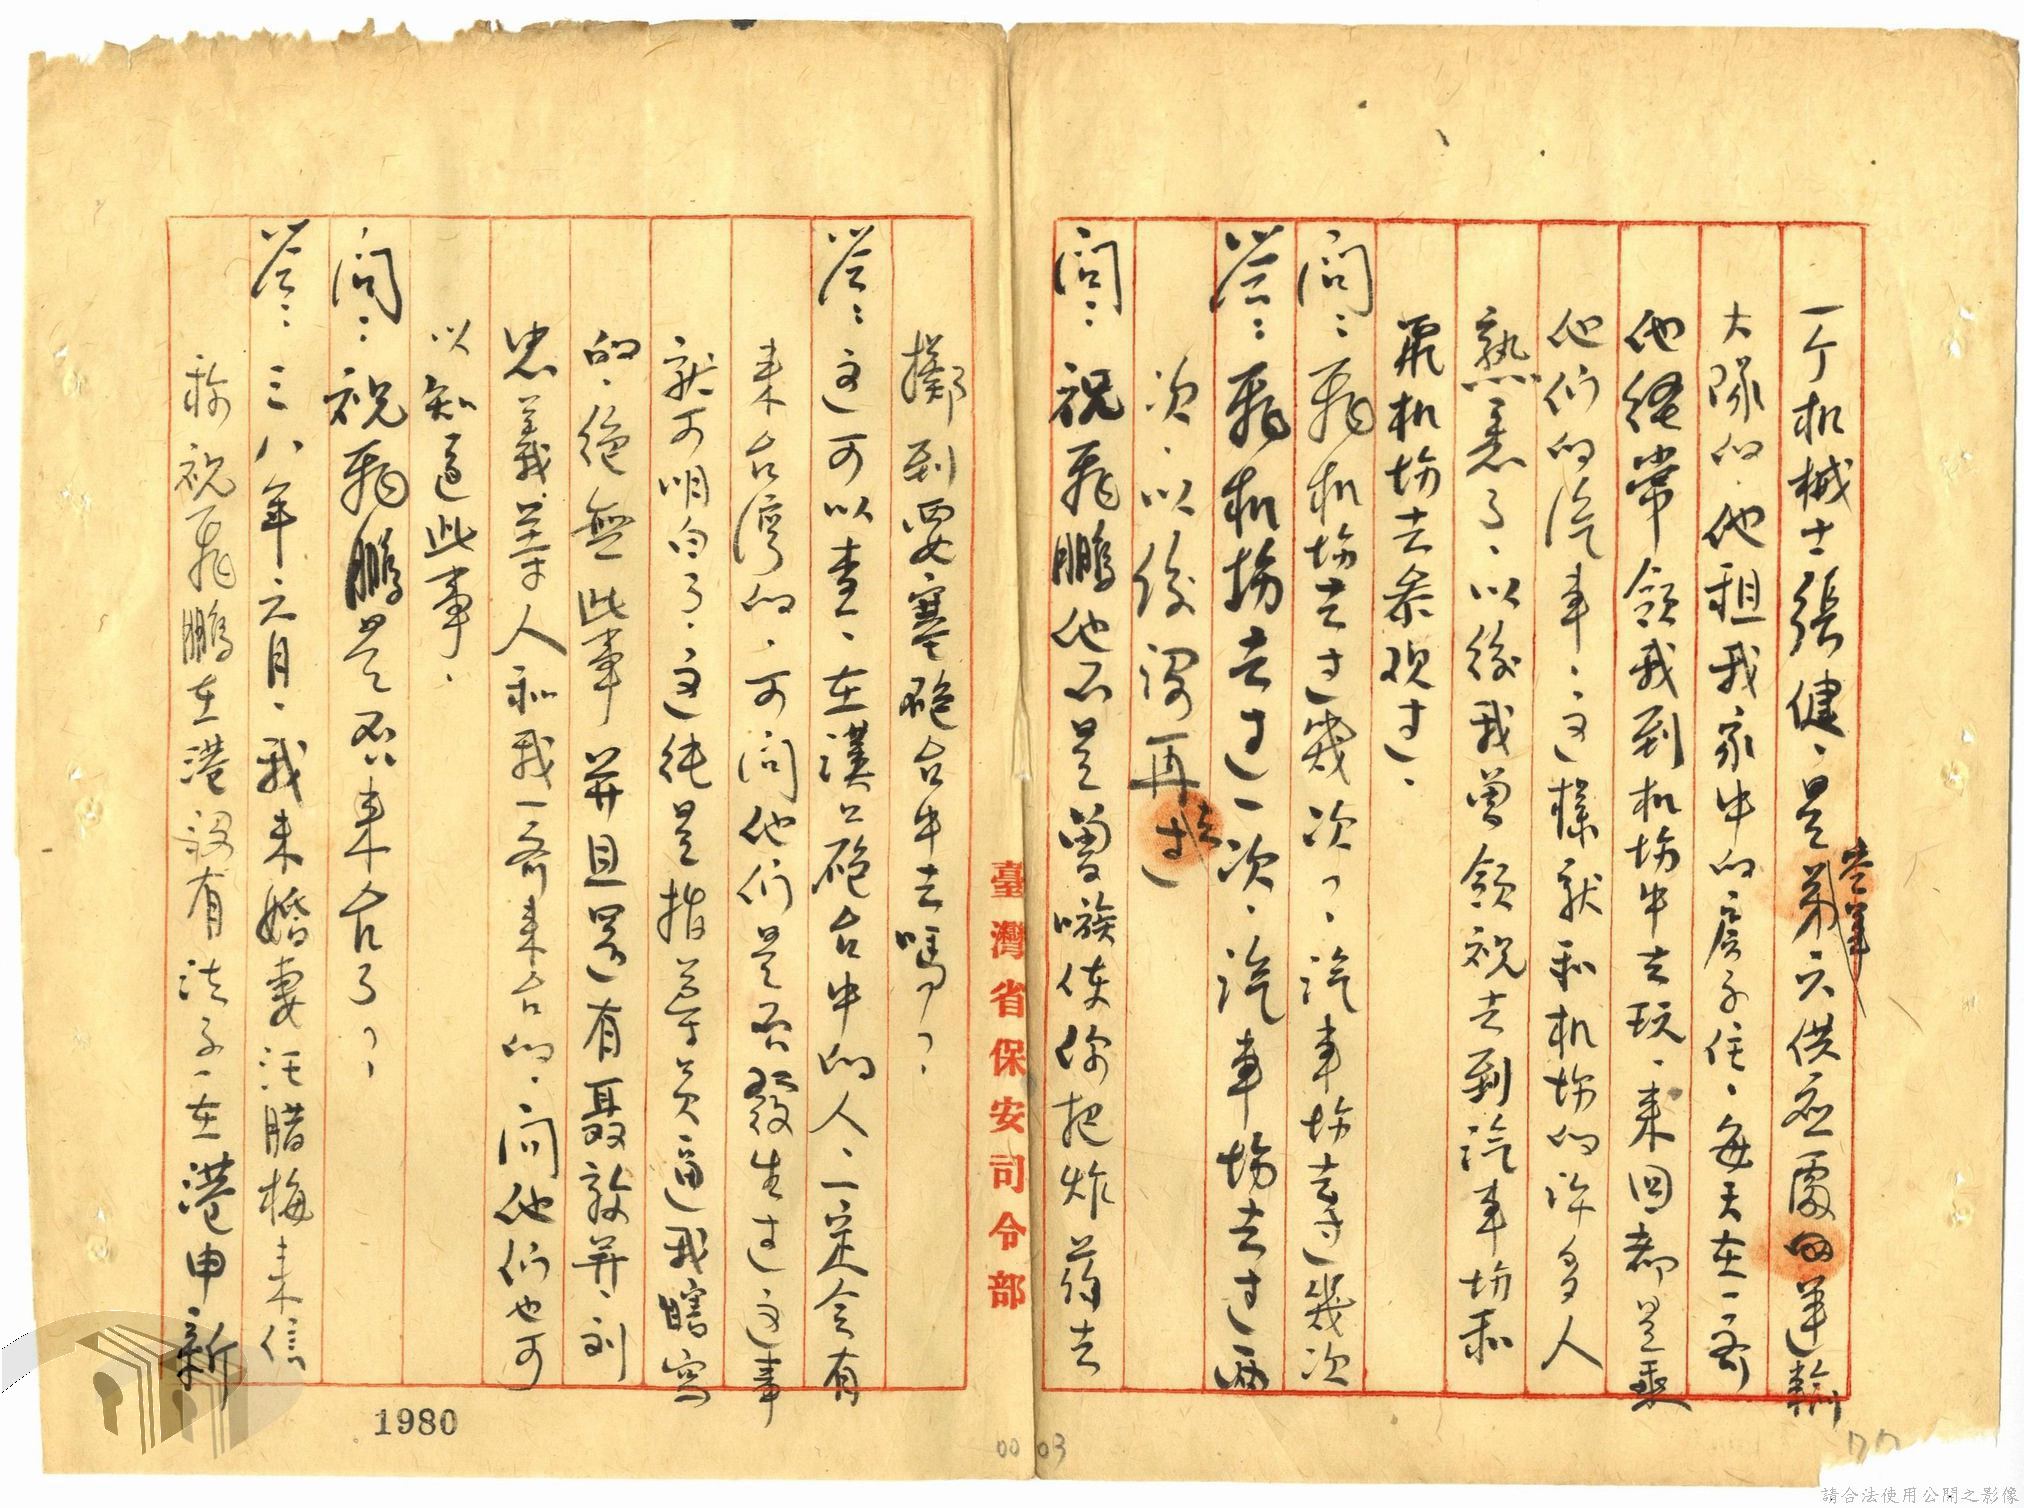 一个机械士張健、是第六供应處的運輸
空軍
大隊的、他租我家中的房子住、每天在一齐
他經常領我到机塲中去玩、来回都是乘
他们的汽車、这樣就和机塲的许多人
熟悉了、以後我曾領祝去到汽車塲和
飛机塲去参观过、
问：飛机塲去过幾次？、汽車塲去过幾次
答：飛机塲去过一次、汽車塲去过两
次、以後没再去过
问：祝飛鵬他不是曾嗾使你把炸葯去
擲到要塞砲台中去嗎？、
答：这可以查、在漢口砲台中的人、一定会有
来台湾的、可问他们是否發生过这事
就可明白了、这純是指導员逼我瞎寫
的、絕無此事 并且還有聂敦并、刘
忠義等人和我一齐来台的、问他们也可
以知道此事、
问：祝飛鵬是否来台了？、
答：三八年六月、我未婚妻汪腊梅来信
称祝飛鵬在港没有法子、在港申新
臺灣省保安司令部
1980
00 03
77
請合法使用公開之影像